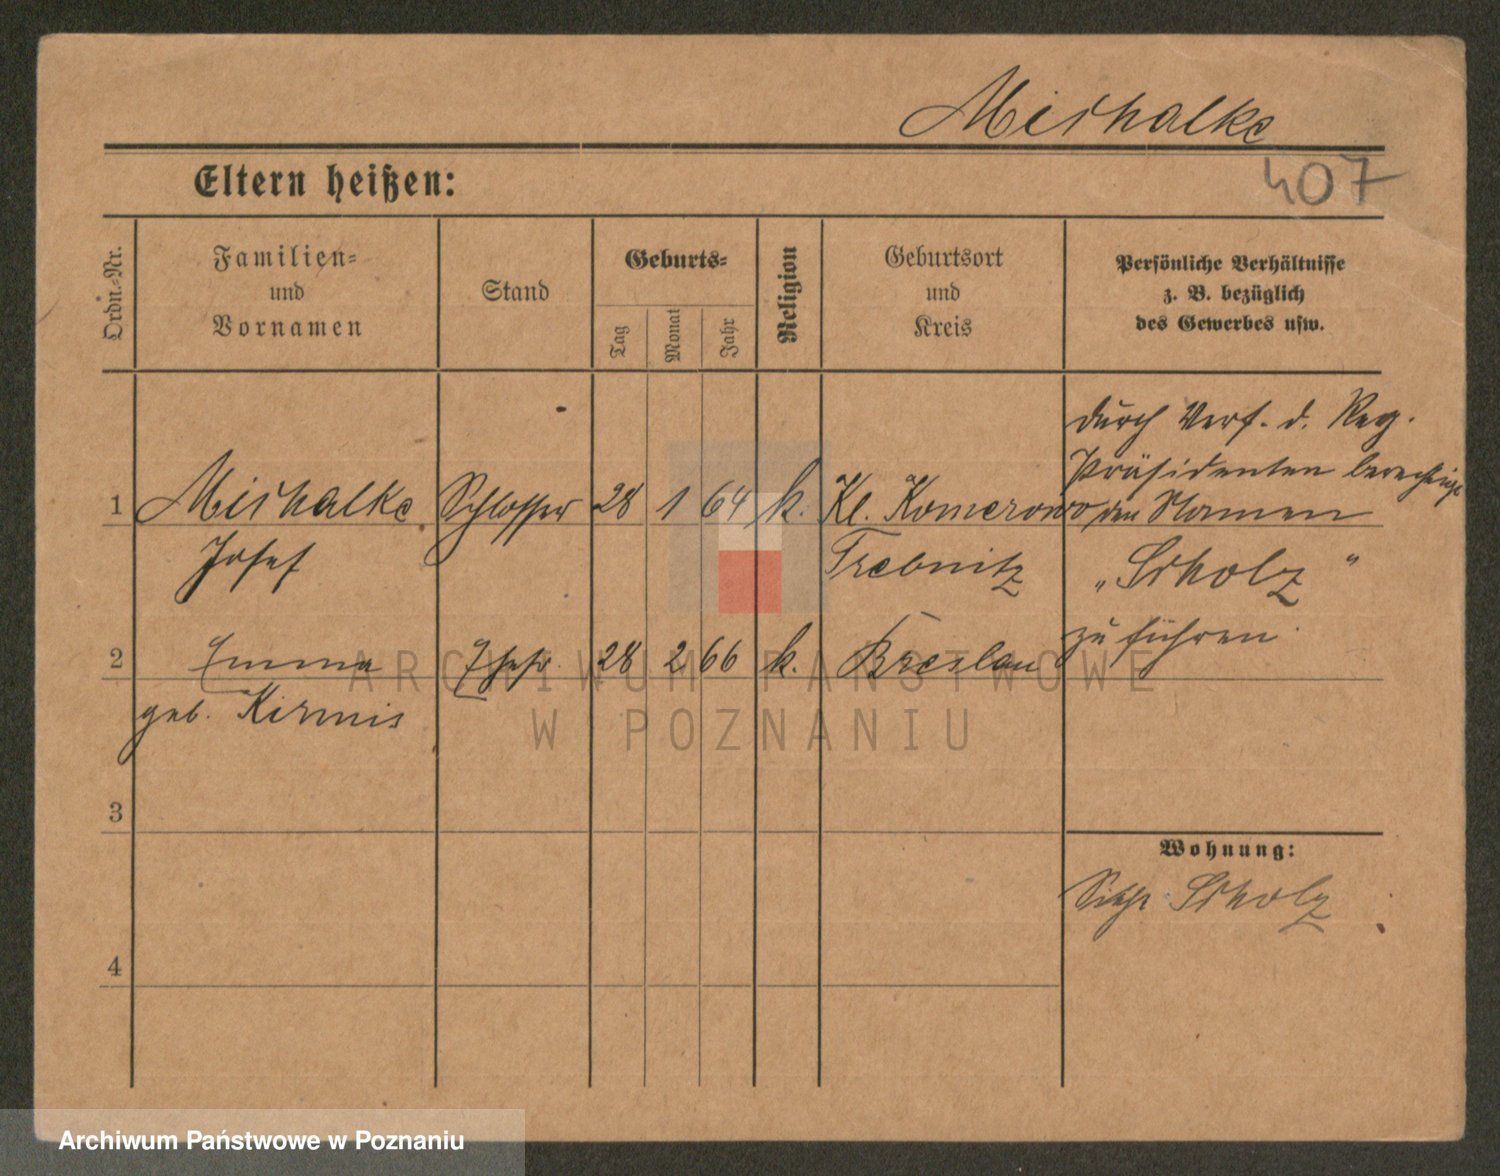 Mischalke
407
Eltern heißen:
Ordn.-Nr.
Familien-
und
Vornamen
Stand
Geburts-
Tag
Monat
Jahr
Religion
Geburtsort
und
Kreis
Persönliche Verhältnisse
z. B. bezüglich
des Gewerbes usw.
durch Verf. d. Reg.
Präsidenten berechtigt
1 Mischalke Schlosser 28 1 64 k. Kl. Komerowo den Namen
Josef Trebnitz „Scholz“
zu führen
2 Emma Ehefr. 28 2 66 k. Breslau
geb. Kirmis
3
Wohnung:
Siehe Scholz
4
ARCHIWUM PAŃSTWOWE
W POZNANIU
Archiwum Państwowe w Poznaniu